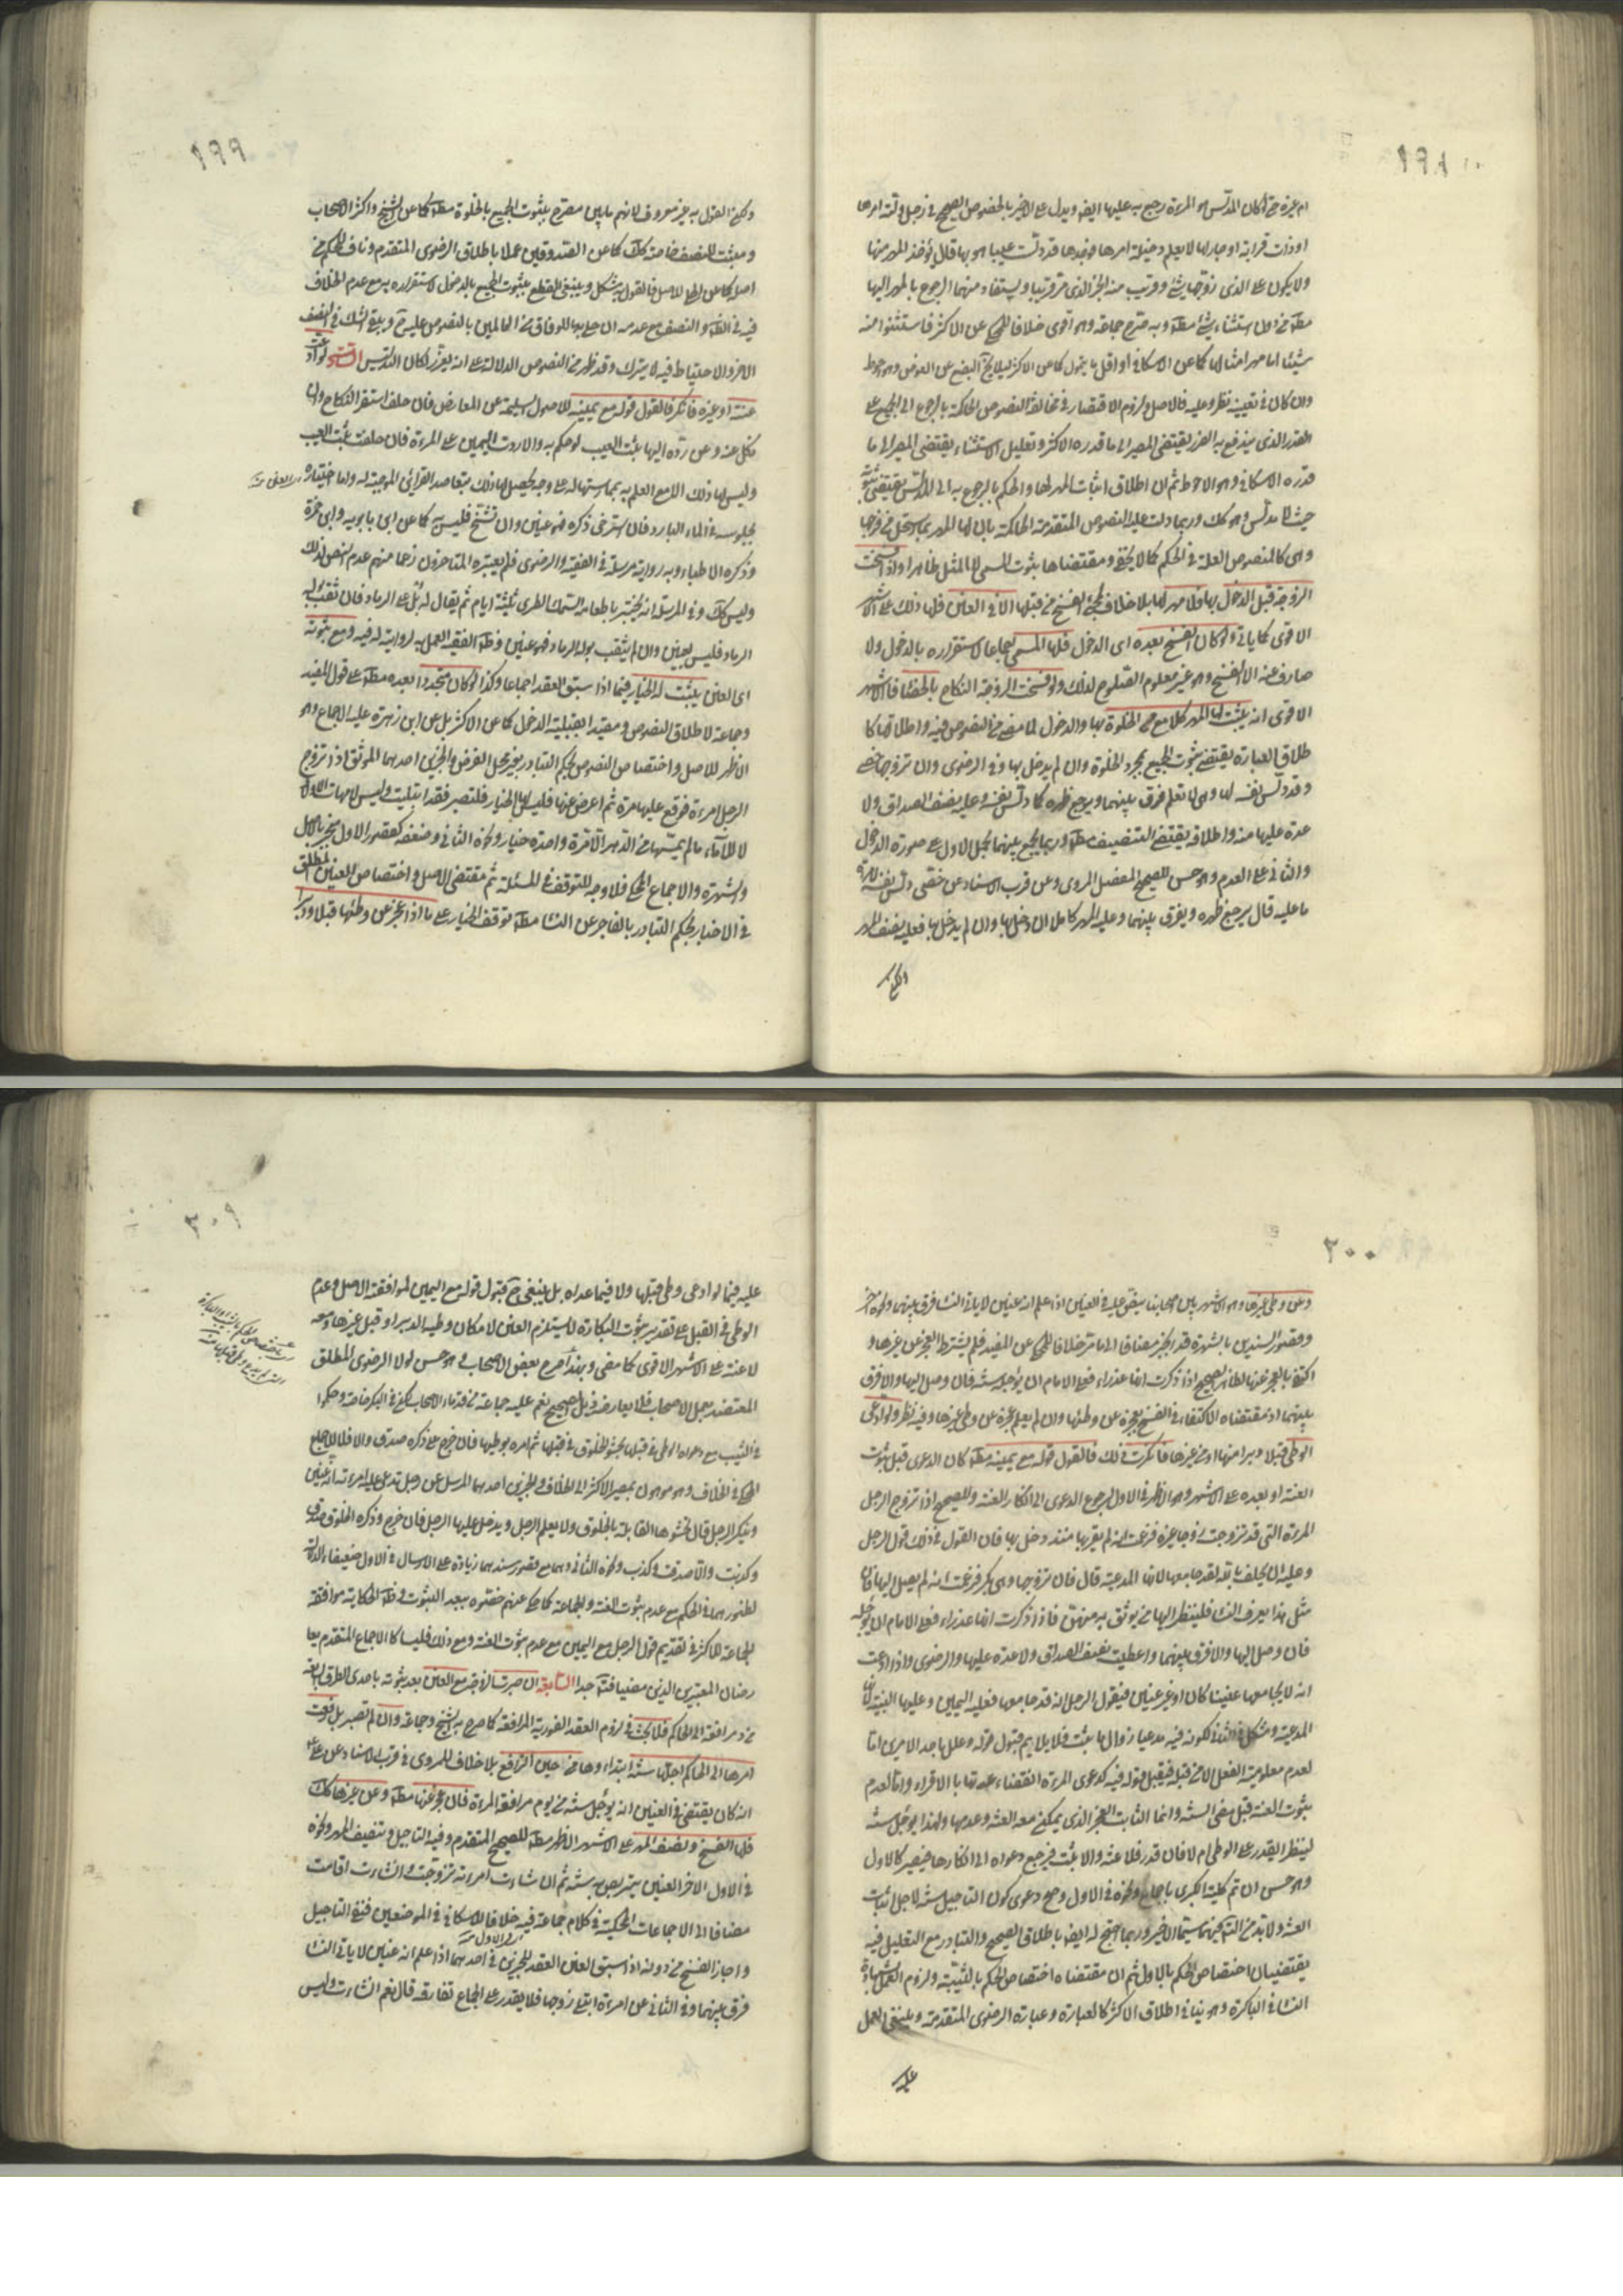 ١٩٨
ام غيره حتى لو كان المدلس هو المرءة رجع به عليها ايضا ويدل على الاخير بالخصوص الصحيح في رجل ولته امرها
او ذات قرابة او جار لها لا يعلم دخيلة امرها فوجدها قد دلست عيبا هو بها قال يؤخذ المهر منها
ولا يكون على الذي زوجها شيء وقريب منه الخبر الذي مر قريبا ويستفاد منهما الرجوع بالمهر اليها
من دون استثناء شيء مطلقا وبه صرح جماعة وهو اقوى خلافا للمحكي عن الاكثر فاستثنوا منه
شيئا اما مهر امثالها كما عن الاسكافي او اقل ما يتمول كما عن الاكثر لئلا يخلو البضع عن العوض وهو احوط
وان كان في تعيينه نظر وعليه فالاصل ولزوم الاقتصار في مخالفة النصوص الحاكمة بالرجوع الى الجميع على
القدر الذي يندفع به الضرر يقتضي المصير الى ما قدره الاكثر وتعليل الاستثناء يقتضي المصير الى ما
قدره الاسكافي وهو الاحوط ثم ان اطلاق اثبات المهر لها والحكم بالرجوع به الى المدلس يقتضي ثبوته
حيث لا مدلس وهو كك وربما دلت عليه النصوص المتقدمة الحاكمة بان لها المهر بما استحل من فرجها
وهي كالمنصوص العلة في الحكم كما لا يخفى ومقتضاها ثبوت المسمى لا المثل ظاهرا ولو فسخت
الزوجة قبل الدخول بها فلا مهر لها بلا خلاف لمجيء الفسخ من قبلها الا في العنن فلها ذلك على الاشهر
الاقوى كما ياتي ولو كان الفسخ بعده اي الدخول فلها المسمى اجماعا لاستقراره بالدخول ولا
صارف عنه الا الفسخ وهو غير معلوم الصلوح لذلك ولو فسخت الزوجة النكاح بالخصاء فالاشهر
الاقوى انه يثبت لها المهر كلا مع الخلوة بها والدخول لما مضى من النصوص فيه واطلاقها كا
طلاق العبارة يقتضي ثبوت الجميع بمجرد الخلوة وان لم يدخل بها وفي الرضوي وان تزوجها خصي
وقد دلس نفسه لها وهي لا تعلم فرق بينهما ويوجع ظهره كما دلس نفسه وعليه نصف الصداق ولا
عدة عليها منه واطلاقه يقتضي التنصيف مطلقا وربما يجمع بينهما بحمل الاول على صورة الدخول
والثاني على العدم وهو حسن للصحيح المفصل المروي وعن قرب الاسناد عن خصي دلس نفسه لامرءة
ما عليه قال يوجع ظهره ويفرق بينهما وعليه المهر كاملا ان دخل بها وان لم يدخل بها فعليه نصف المهر
١٩٩
ولكن القول به غير معروف لانهم بين مصرح بثبوت الجميع بالخلوة مطلقا كما عن الشيخ واكثر الاصحاب
ومثبت للنصف خاصة كك كما عن الصدوقين عملا باطلاق الرضوي المتقدم وناف للحكم من
اصله كما عن الحلي للاصل فالقول به مشكل وينبغي القطع بثبوت الجميع بالدخول لاستقراره به مع عدم الخلاف
فيه في الظاهر والنصف مع عدمه ان جاء بها للوفاق من العالمين بالنصوص عليه ح ويبقى الشك في النصف
الاخر والاحتياط فيه لا يترك وقد ظهر من النصوص الدلالة على انه يعزر لمكان التدليس السادسة لو ادعت
عننه او غيره فانكر فالقول قوله مع يمينه للاصول السليمة عن المعارض فان حلف استقر النكاح وان
نكل عنه وعن رده اليها ثبت العيب لو حكم به والا ردت اليمين على المرءة فان حلفت ثبت العيب
وليس لها ذلك الا مع العلم به بممارستها له على وجه يحصل لها ذلك بتعاضد القرائن الموجبة له واما اختباره
بجلوسه في الماء البارد فان استرخى ذكره فهو عنين وان تشنج فليس به كما عن ابن بابويه وابن حمزة
وذكره الاطباء وبه رواية مرسلة في الفقيه والرضوي فلم يعتبره المتاخرون زعما منهم عدم النص لذلك
وليس كك وفي المرسل انه يختبر باطعامه السمك الطري ثلثة ايام ثم يقال له بل على الرماد فان ثقب بوله
الرماد فليس بعنين وان لم يثقب بوله الرماد فهو عنين وظاهر الفقيه العمل به لروايته له فيه ومع ثبوته
اي العنن يثبت له الخيار فيما اذا سبق العقد اجماعا وكذا لو كان متجددا بعده مطلقا على قول المفيد
وجماعة لاطلاق النصوص ومقيدا بقبلية الدخول كما عن الاكثر بل عن ابن زهرة عليه الاجماع وهو
الاظهر للاصل واختصاص النصوص بحكم التبادر بغير محل الفرض والخبرين احدهما الموثق اذا تزوج
الرجل امرءة فوقع عليها مرة ثم اعرض عنها فليس لها الخيار فلتصبر فقد ابتليت وليس لامهات الاولاد
لا للاماء ما لم يمسها من الدهر الا مرة واحدة خيار ونحوه الثاني وضعفه كقصور الاول منجبر بالاصل
والشهرة والاجماع المحكي فلا وجه للتوقف في المسئلة ثم مقتضى الاصل واختصاص العنين المطلق
في الاخبار بحكم التبادر بالعاجز عن النساء مطلقا توقف الخيار على ما اذا عجز عن وطئها قبلا ودبرا
٢٠٠
وعن وطى غيرها وهو الاشهر بين اصحابنا ينص عليه في العنين اذا علم انه عنين لا ياتي النساء فرق بينهما ونحوه اخر
وقصور السندين بالشهرة قد انجبر مضافا الى ما مر خلافا للمحكي عن المفيد فلم يشترط العجز عن غيرها و
اكتفى بالعجز عنها لظاهر الصحيح اذا ذكرت انها عذراء فعلى الامام ان يؤجله سنة فان وصل اليها والا فرق
بينهما اذ مقتضاه الاكتفاء في الفسخ بعجزه عن وطئها وان لم يعلم عجزه عن وطى غيرها وفيه نظر ولو ادعى
الوطى قبلا او دبرا منها او من غيرها فانكرت ذلك فالقول قوله مع يمينه مطلقا كان الدعوى قبل ثبوت
العنة او بعده على الاشهر وهو الاظهر في الاول لرجوع الدعوى الى انكار العنة وللصحيح اذا تزوج الرجل
المرءة التي قد تزوجت زوجا غيره فزعمت انه لم يقربها منذ دخل بها فان القول في ذلك قول الرجل
وعليه ان يحلف بالله لقد جامعها لانها المدعية قال فان تزوجها وهي بكر فزعمت انه لم يصل اليها فان
مثل هذا يعرف النساء فلينظر اليها من يوثق به منهن فاذا ذكرت انها عذراء فعلى الامام ان يؤجله
فان وصل اليها والا فرق بينهما واعطيت نصف الصداق ولا عدة عليها والرضوي واذا ادعت
انه لا يجامعها عنينا كان او غير عنين فيقول الرجل انه قد جامعها فعليه اليمين وعليها البينة لانها
المدعية ومشكل في الثاني لكونه فيه مدعيا زوال ما ثبت فلا يلايم قبول قوله وعلل باحد الامرين اما
لعدم معلومية الفعل الا من قبله فيقبل قوله فيه كدعوى المرءة انقضاء عدتها بالاقراء واما لعدم
ثبوت العنة قبل مضى السنة وانما الثابت العجز الذي يمكن معه العنة وعدمها ولهذا يؤجل سنة
لينظر ايقدر على الوطى ام لا فان قدر فلا عنة والا ثبت فيرجع دعواه الى انكارها فيصير كالاول
وهو حسن ان تم كلية الكبرى باجماع ونحوه في الاول وصح دعوى كون التاجيل سنة لاجل اثبات
العنة ولا بد من التامل فيهما سيما الاخير وربما احتج له ايضا باطلاق الصحيح والتبادر مع التعليل فيه
يقتضيان اختصاص الحكم بالاول ثم ان مقتضاه اختصاص الحكم بالثيبة ولزوم العمل بشهادة
النساء في الباكرة وهو ينافي اطلاق الاكثر كالعبارة وعبارة الرضوي المتقدمة وينبغي العمل
٢٠١
عليه فيما لو ادعى وطى قبلها ولا فيما عداه بل ينبغي ح قبول قوله مع اليمين لموافقته الاصل وعدم
الوطى في القبل على تقدير ثبوت البكارة لا يستلزم العنن لامكان وطيه الدبر او قبل غيرها ومعه
لا عنة على الاشهر الاقوى كما مضى وبهذا صرح بعض الاصحاب وهو حسن لولا الرضوي المطلق
المعتضد بعمل الاصحاب فلا يعارضه ذيل الصحيح نعم عليه جماعة من قدماء الاصحاب لكن في البكر خاصة وحكموا
في الثيب مع دعواه الوطى في قبلها بحشو الخلوق في قبلها ثم امره بوطيها فان خرج على ذكره صدق والا فلا للاجماع
المحكي في الخلاف وهو موهون بمصير الاكثر الى الخلاف وللخبرين احدهما المرسل عن رجل تدعي عليه امرءته انه عنين
وينكر الرجل قال تحشوها القابلة بالخلوق ولا يعلم الرجل ويدخل عليها الرجل فان خرج وذكره الخلوق صدق
وكذبت والا صدقت وكذب ونحوه الثاني وهما مع قصور سندهما زيادة على الارسال في الاول ضعيفا الدلالة
لظهورهما في الحكم مع عدم ثبوت العنة والجماعة كما حكى عنهم خصوه ببعد الثبوت وظاهر الحكاية موافقة
الجماعة للاكثر في تقديم قول الرجل مع اليمين مع عدم ثبوت العنة ومع ذلك فليسا كالاجماع المتقدم يعا
رضان المعتبرين الذين مضيا فتامل جدا السابعة ان صبرت الزوجة مع العنن بعد ثبوته باحدى الطرق السابقة
من دون مرافعة الى الحاكم فلا بحث في لزوم العقد لفورية المرافعة كما صرح به الشيخ وجماعة وان لم تصبر بل رفعت
امرها الى الحاكم اجلها سنة ابتداءها من حين الترافع بلا خلاف للمروي في قرب الاسناد عن علي
انه كان يقضي في العنين انه يؤجل سنة من يوم مرافعة المرءة فان عجز عنها مطلقا وعن غيرها كك
فلها الفسخ ونصف المهر على الاشهر الاظهر مطلقا للصحيح المتقدم وفيه التاجيل وتنصيف المهر ونحوه
في الاول الاخر العنين يتربص به سنة ثم ان شاءت امرءته تزوجت وان شاءت اقامت
مضافا الى الاجماعات المحكية في كلام جماعة فيه خلافا للاسكافي في الموضعين فنفى التاجيل
واجاز الفسخ من دونه اذا سبق العنن العقد للخبرين في احدهما اذا علم انه عنين لا ياتي النساء
فرق بينهما وفي الثاني عن امرءة ابتلى زوجها فلا يقدر على الجماع تفارقه قال نعم ان شاءت وليس